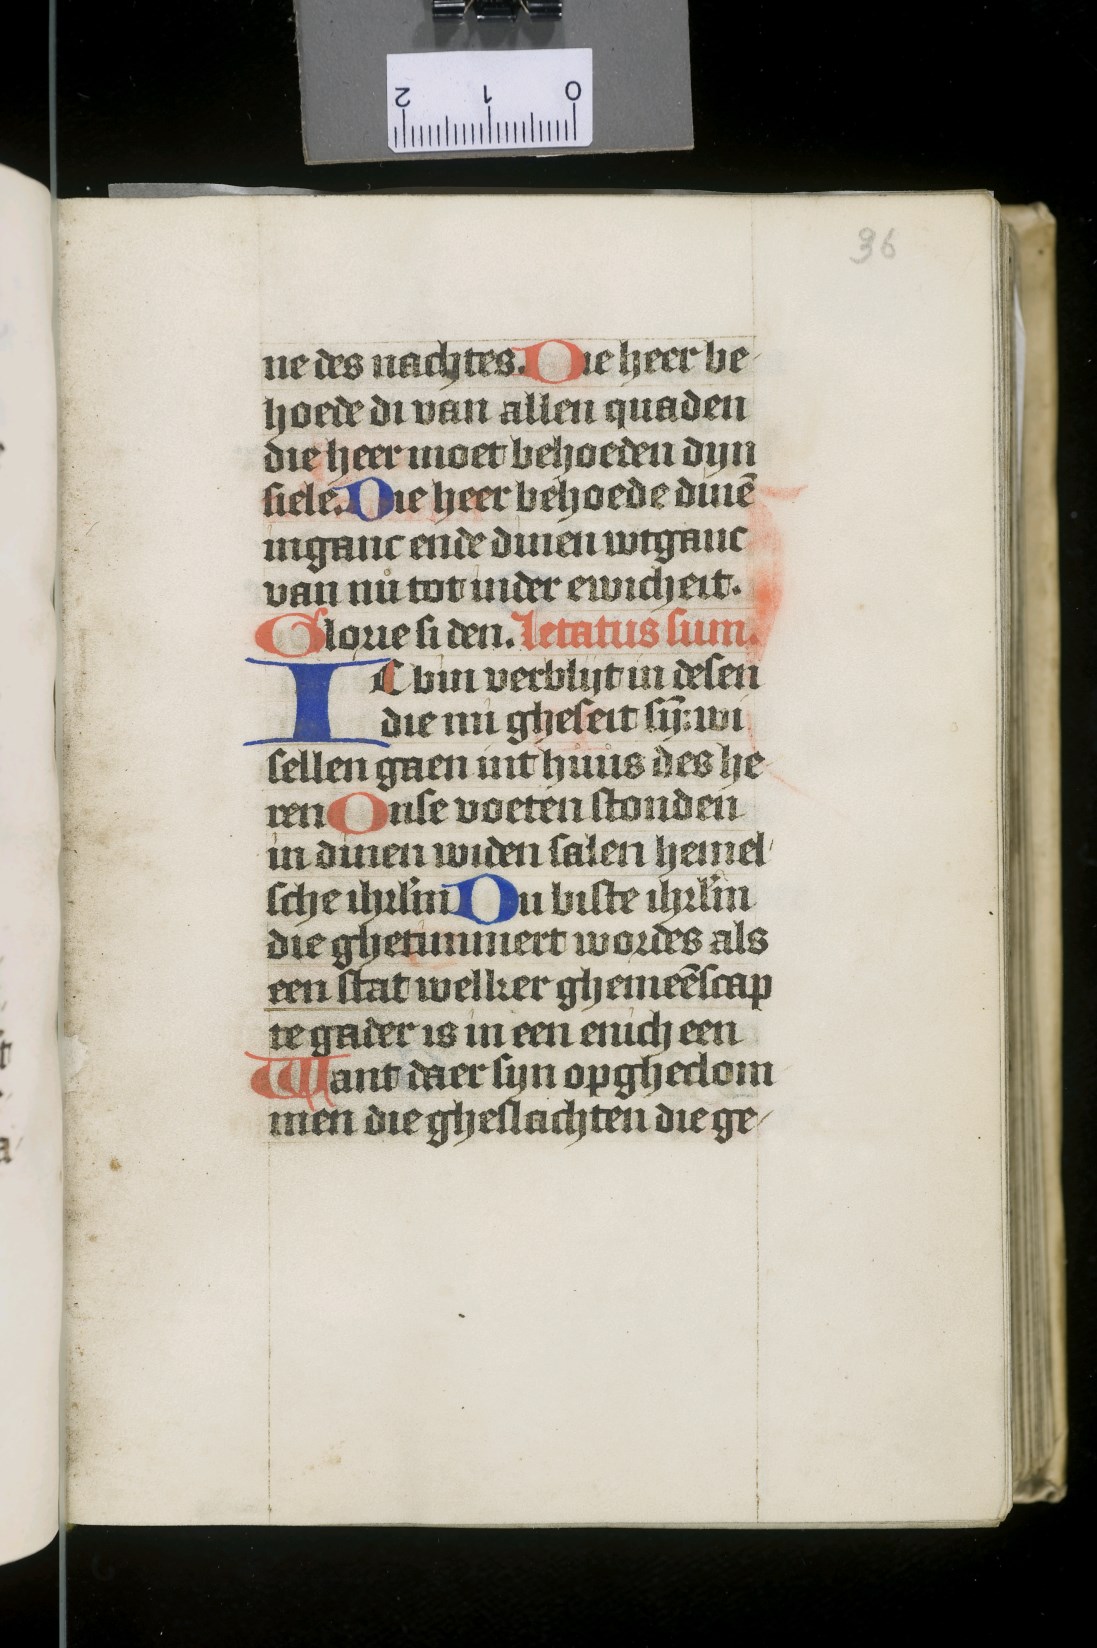 2 1 0
36
ne des nachtes. Die heer be
hoede di van allen quaden
die heer moet behoeden dyn
siele. Die heer behoede dinē
inganc ende dinen wtganc
van nu tot inder ewicheit.
Glorie si den. Letatus sum.
IC bin verblijt in desen
die mi gheseit sijn: wi
sellen gaen int huus des he
ren Onse voeten stonden
in dinen widen salen hemel
sche ihrlm Du biste ihrlm
die ghetimmert wordes als
een stat welker ghemeēscap
te gader is in een enich een
Want daer sijn opgheclom
men die gheslachten die ge